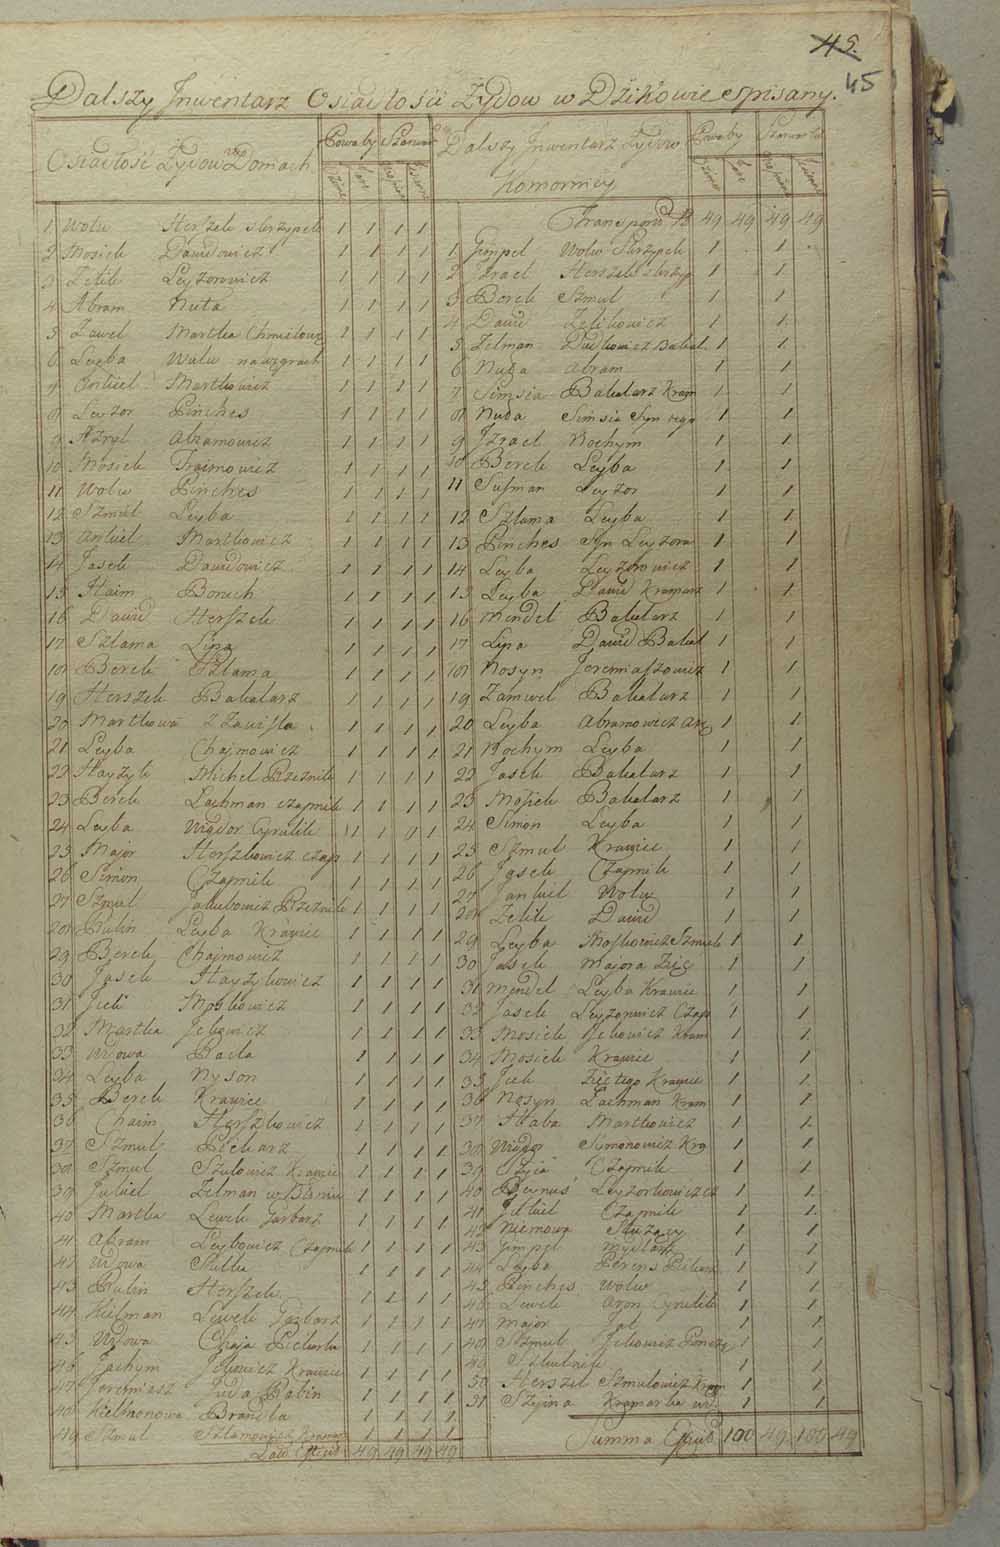 45
Dalszy Jnwentarz Osiadłości Żydow w Dzikowie spisany.
Osiadłość Żydow Domach
Powaby Szarwar
1 Wolw Herszek Skrzypek 1 1 1 1
2 Mosiek Dawidowicz 1 1 1 1
3 Zelik Leyzorowicz 1 1 1 1
4 Abram Nuta 1 1 1 1
5 Zawel Martka Chmielow 1 1 1 1
6 Leyba Wolw 1 1 1 1
7 Martkowicz 1 1 1 1
8 Leyzor Pinches 1 1 1 1
9 Azryl Abramowicz 1 1 1 1
10 Mosiek Froimowicz 1 1 1 1
11 Wolw Pinches 1 1 1 1
12 Szmul Leyba 1 1 1 1
13 Ankiel Martkowicz 1 1 1 1
14 Jasek Dawidowicz 1 1 1 1
15 Haim Boruch 1 1 1 1
16 Dawid Herszek 1 1 1 1
17 Szlama Lipa 1 1 1 1
18 Berek Szlama 1 1 1 1
19 Herszek Bakalarz 1 1 1 1
20 Martkowa z Zawisla 1 1 1 1
21 Leyba Chajmowicz 1 1 1 1
22 Hayzyk Michel Rzeznik 1 1 1 1
23 Berek Lachman czapnik 1 1 1 1
24 Leyba Wigdor Cyrulik 1 1 1 1
25 Major Herszkowicz czap 1 1 1 1
26 Simon Czapnik 1 1 1 1
27 Szmul Jakubowicz Rzeznik 1 1 1 1
28 Rubin Leyba Krawiec 1 1 1 1
29 Berek Chajmowicz 1 1 1 1
30 Jasek Hayzykowicz 1 1 1 1
31 Jcek Moszkowicz 1 1 1 1
32 Martka Jckowicz 1 1 1 1
33 Wdowa Bacla 1 1 1 1
34 Leyba Nyson 1 1 1 1
35 Berek Krawiec 1 1 1 1
36 Chaim Herszkowicz 1 1 1 1
37 Szmul Piekarz 1 1 1 1
38 Szmul Szulowicz Krawiec 1 1 1 1
39 Jukiel Zelman w Błoniu 1 1 1 1
40 Martka Lewek Garbarz 1 1 1 1
41 Abram Leybowicz Czapnik 1 1 1 1
42 Wdowa 1 1 1 1
43 Rubin Herszek 1 1 1 1
44 Hielman Lewek Garbarz 1 1 1 1
45 Wdowa Chaja Piekarka 1 1 1 1
46 Jachym Jckowicz Krawiec 1 1 1 1
47 Jeremiasz Juda Rabin 1 1 1 1
48 Brandla 1 1 1 1
49 Szmul Szlamowicz Kramar 1 1 1 1
49 49 49 49
Dalszy Jnwentarz Żydow
Komornicy
Powaby Szarwark
Transport 49 49 49 49
1 Gimpel Wolw Skrzypek 1 1
2 Jzrael Herszek Skrzyp 1 1
3 Berek Szmul 1 1
4 Dawid Zelikowicz 1 1
5 Zelman Bakal. 1 1
6 Nuta Abram 1 1
7 Simsia Bakalarz Kram 1 1
8 Nuta Simsia Syn tego 1 1
9 Jzrael Nochym 1 1
10 Berek Leyba 1 1
11 Susman Leyzor 1 1
12 Szlama Leyba 1 1
13 Pinches Syn Leyzora 1 1
14 Leyba Leyzorowicz 1 1
15 Leyba Dawid Kramarz 1 1
16 Mendel Bakalarz 1 1
17 Lipa Dawid Bakal 1 1
18 Nosyn Jeremiaszowicz 1 1
19 Zamwel Bakalarz 1 1
20 Leyba Abramowicz 1 1
21 Nochym Leyba 1 1
22 Jasek Bakalarz 1 1
23 Mosiek Bakalarz 1 1
24 Simon Leyba 1 1
25 Szmul Krawiec 1 1
26 Jasek Czapnik 1 1
27 Jankiel Wolw 1 1
28 Zelik Dawid 1 1
29 Leyba Moszkowicz Szmuk 1 1
30 Jasek Majora Zięć 1 1
31 Mendel Leyba Krawiec 1 1
32 Jasek Leyzorowicz Czap 1 1
33 Mosiek Jckowicz Kram 1 1
34 Mosiek Krawiec 1 1
35 Jcek Zięć tego Krawiec 1 1
36 Nosyn Lachman Kram 1 1
37 Haba Martkowicz 1 1
38 Wigdor Simonowicz Kra 1 1
39 Czapnik 1 1
40 Beynus Leyzorkowicz cz 1 1
41 Jckiel Czapnik 1 1
42 Niemowa Służący 1 1
43 Gimpel Mydlarz 1 1
44 Leyba Perens Piekarz 1 1
45 Pinches Wolw 1 1
46 Lewek Aron Cyrulik 1 1
47 Major 1 1
48 Szmul Jckowicz 1 1
49 Szkulnik 1 1
50 Herszel Szmulowicz Kram 1 1
51 Kramarka 1 1
Summa 100 49 100 49